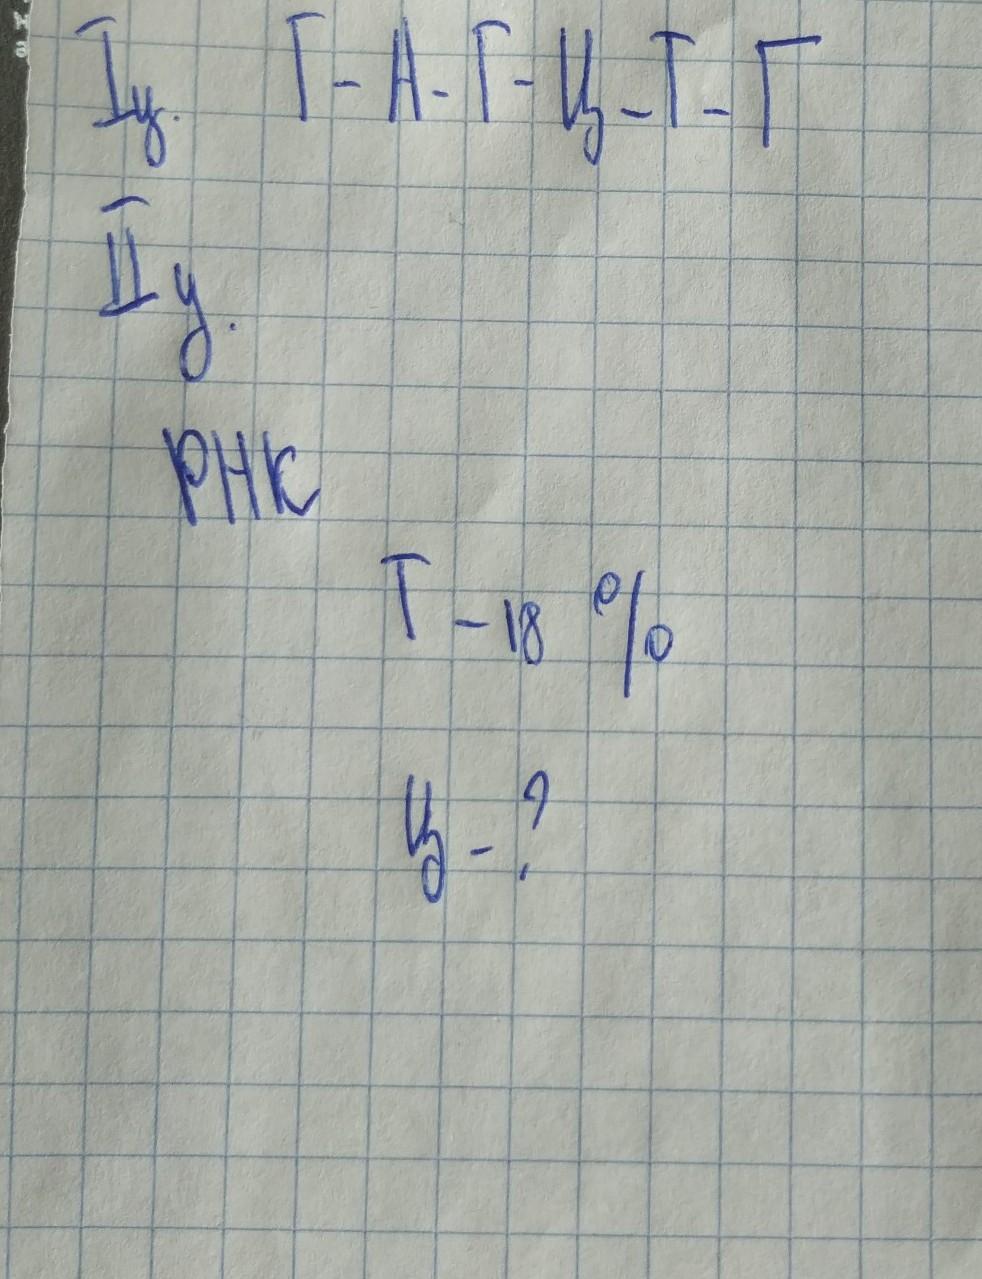 Iц. Г-А-Г-Ц-Т-Г
IIц.
РНК
Т-18 %
Ц-?